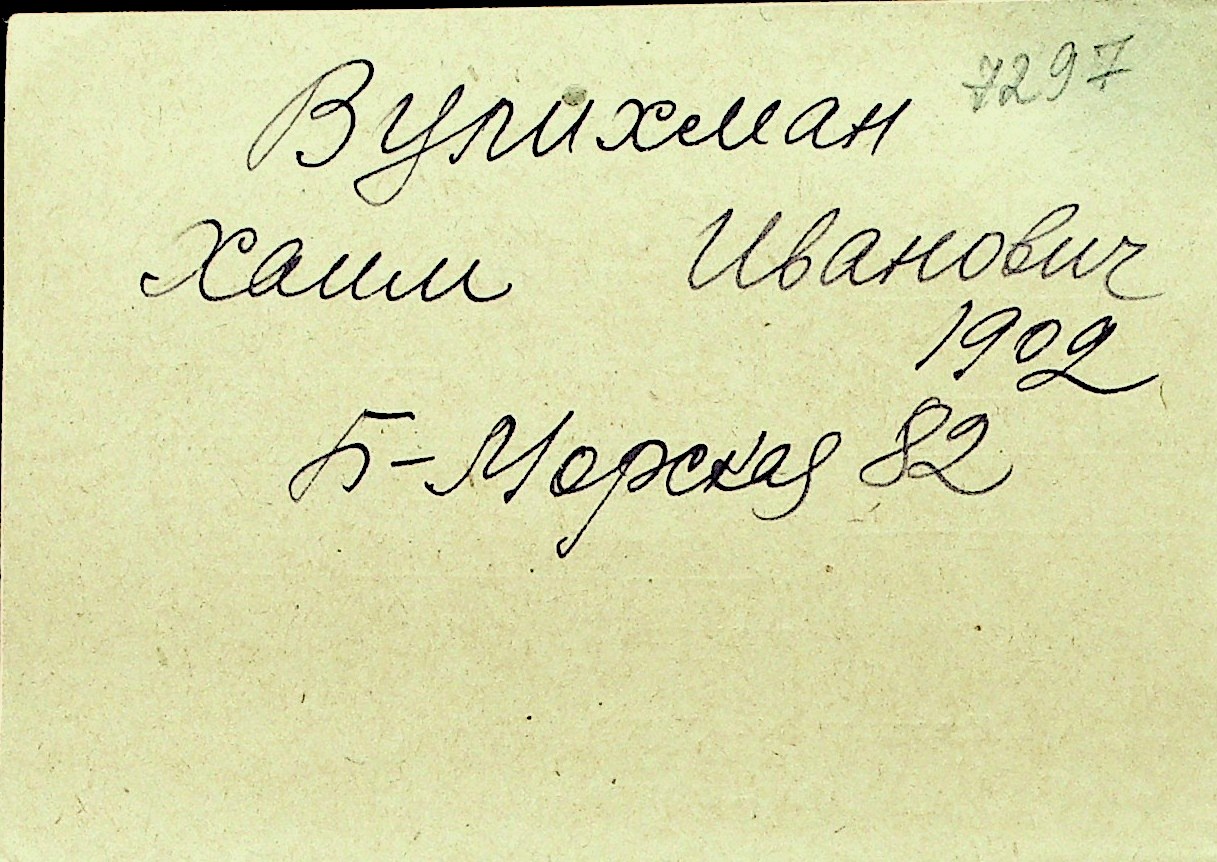 7297
Вулихман
Хаим Иванович
1902
Б-Морская 82